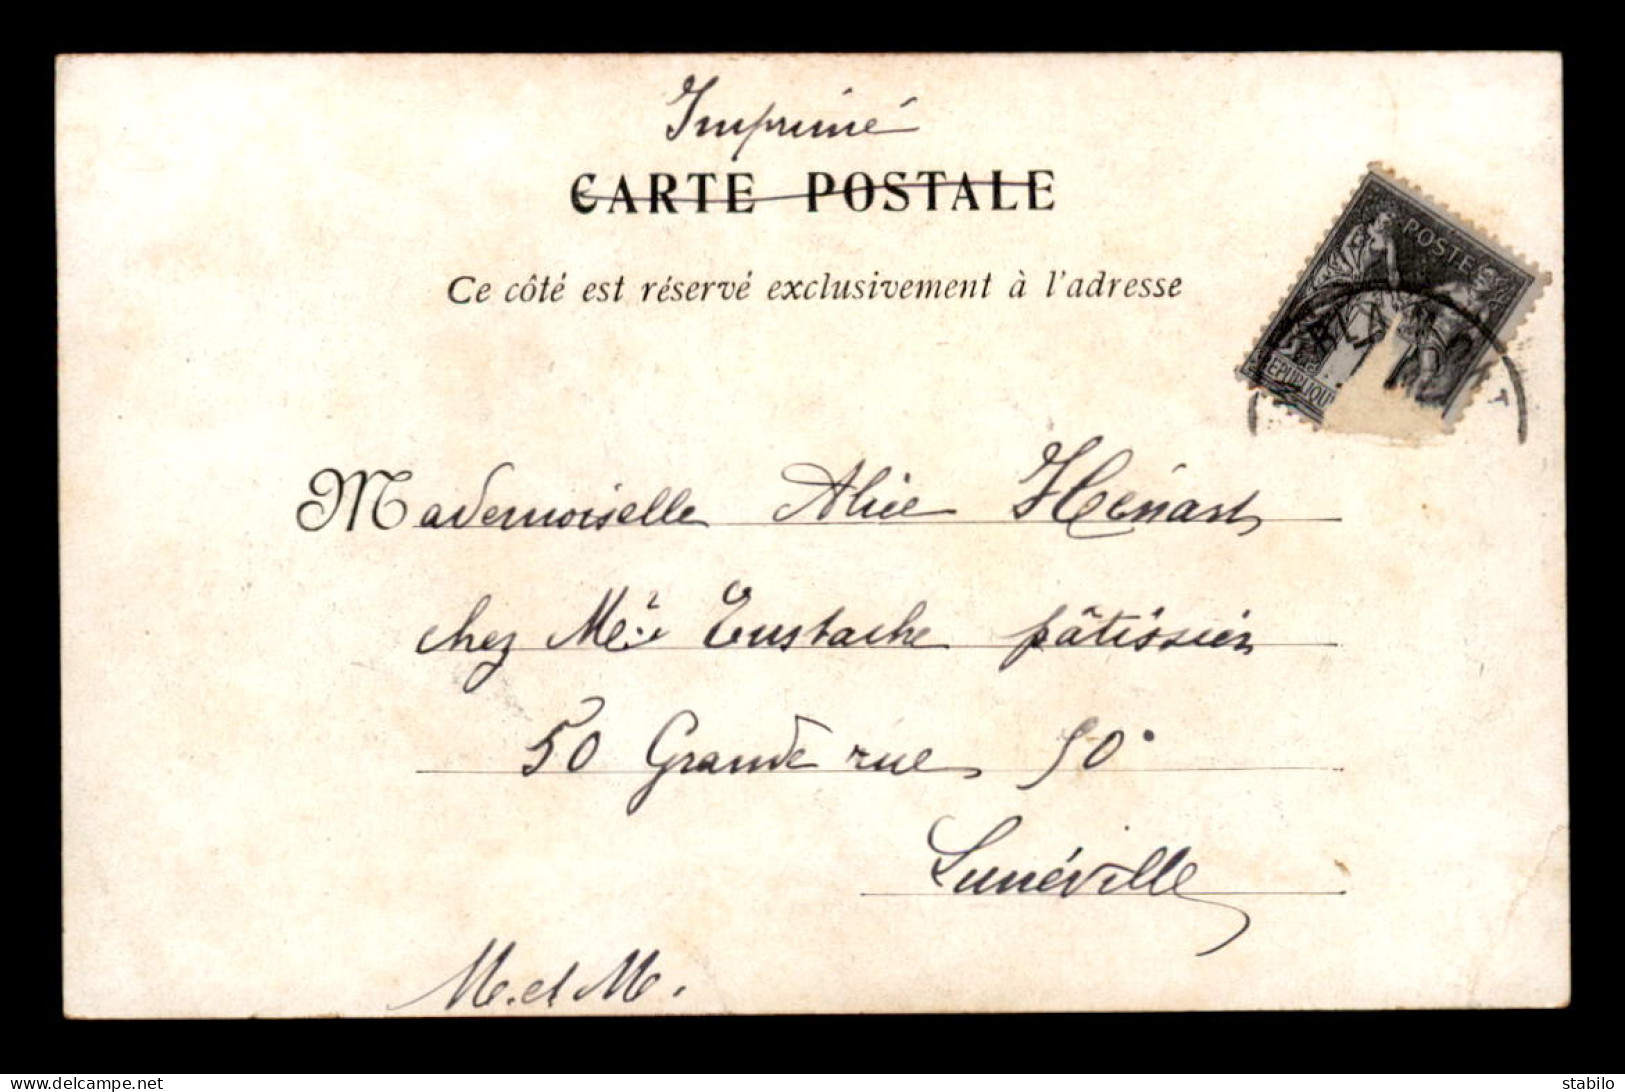 Imprimé
CARTE POSTALE
Ce côté est réservé exclusivement à l'adresse
POSTES
REPUBLIQUE
Mademoiselle Alice Hénart
chez Me Eustache pâtissier
50 Grande rue 50
Lunéville
M. et M.
delcampe.net
stabilo